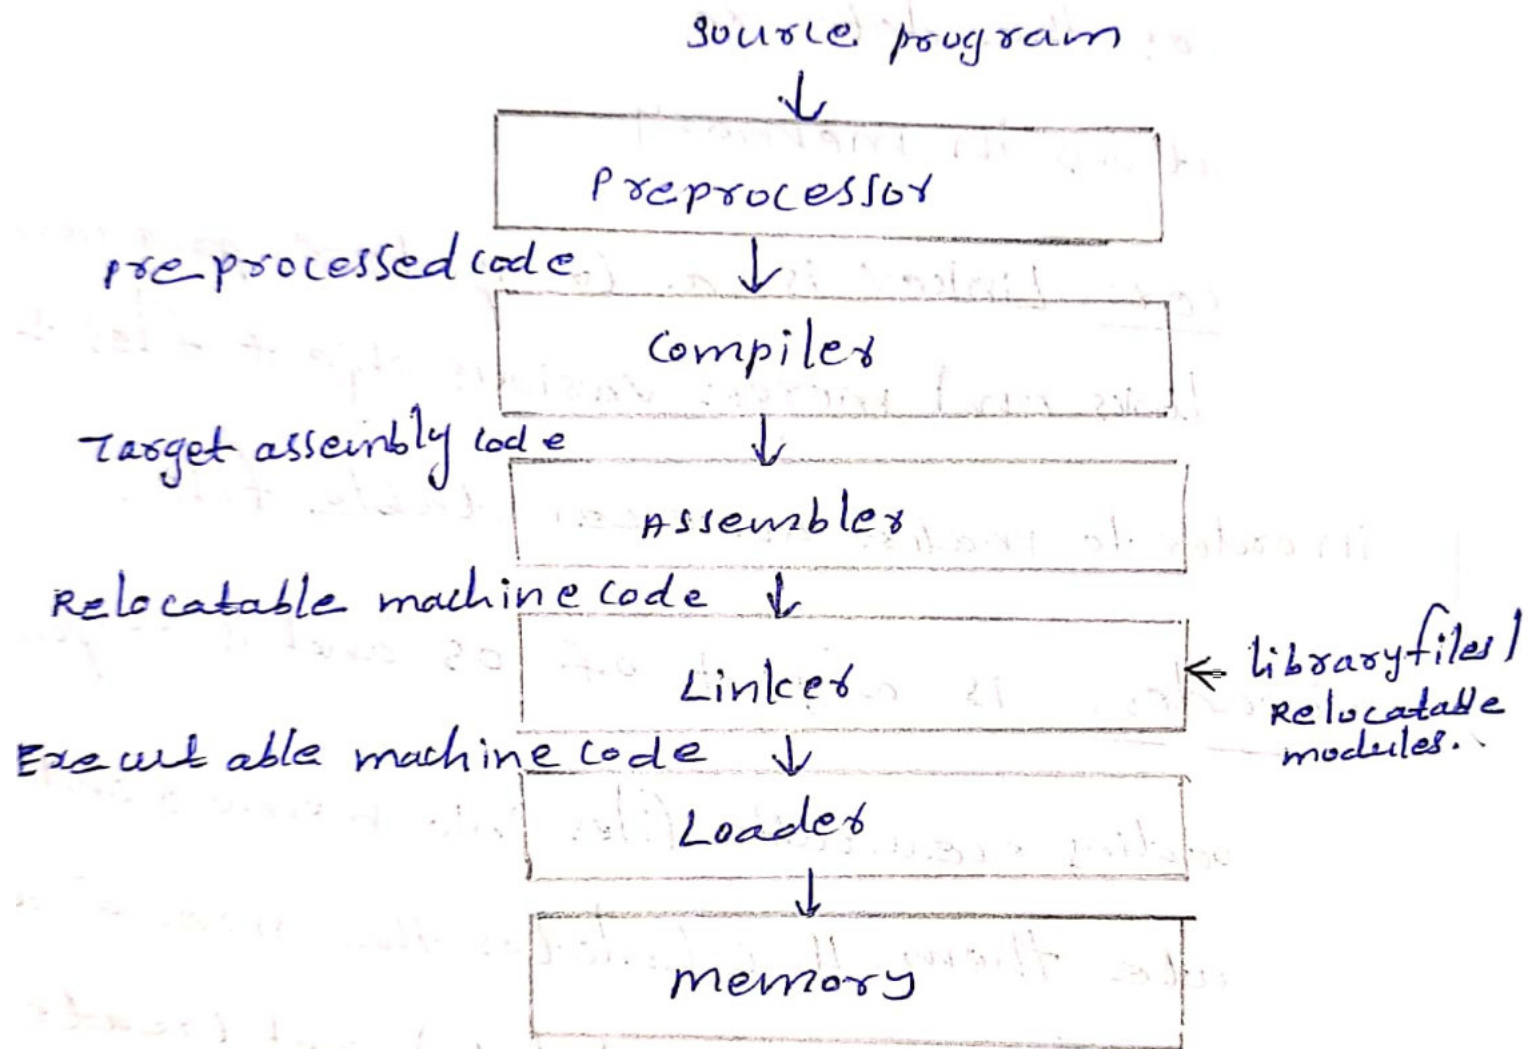 Source program
Preprocessor
preprocessed code
Compiler
Target assembly code
Assembler
Relocatable machine code
Linker
library files/
Relocatable
modules.
Executable machine code
Loader
Memory